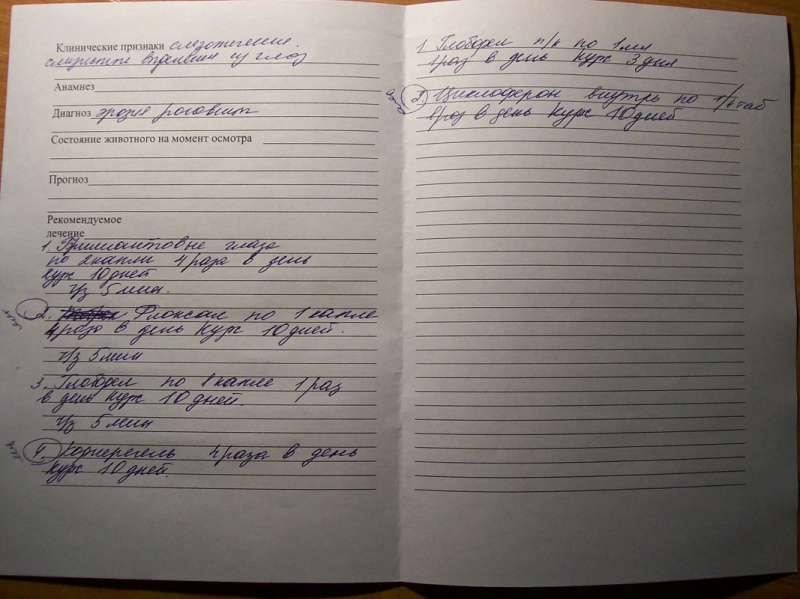 Клинические признаки слезотечение,
слизистые выделения из глаз
Анамнез
Диагноз эрозия роговицы
Состояние животного на момент осмотра
Прогноз
Рекомендуемое
лечение
1. Бриллиантовые глаза
по 2 капли 4 раза в день
курс 10 дней
ч/з 5 мин.
2. Флоксал по 1 капле
4 раза в день курс 10 дней.
ч/з 5 мин
3. Глобфел по 1 капле 1 раз
в день курс 10 дней.
ч/з 5 мин
4. Корнерегель 4 раза в день
курс 10 дней.
1 Глобфел п/к по 1 мл
1 раз в день курс 3 дня
2. Циклоферон внутрь по таб
1 раз в день курс 10 дней